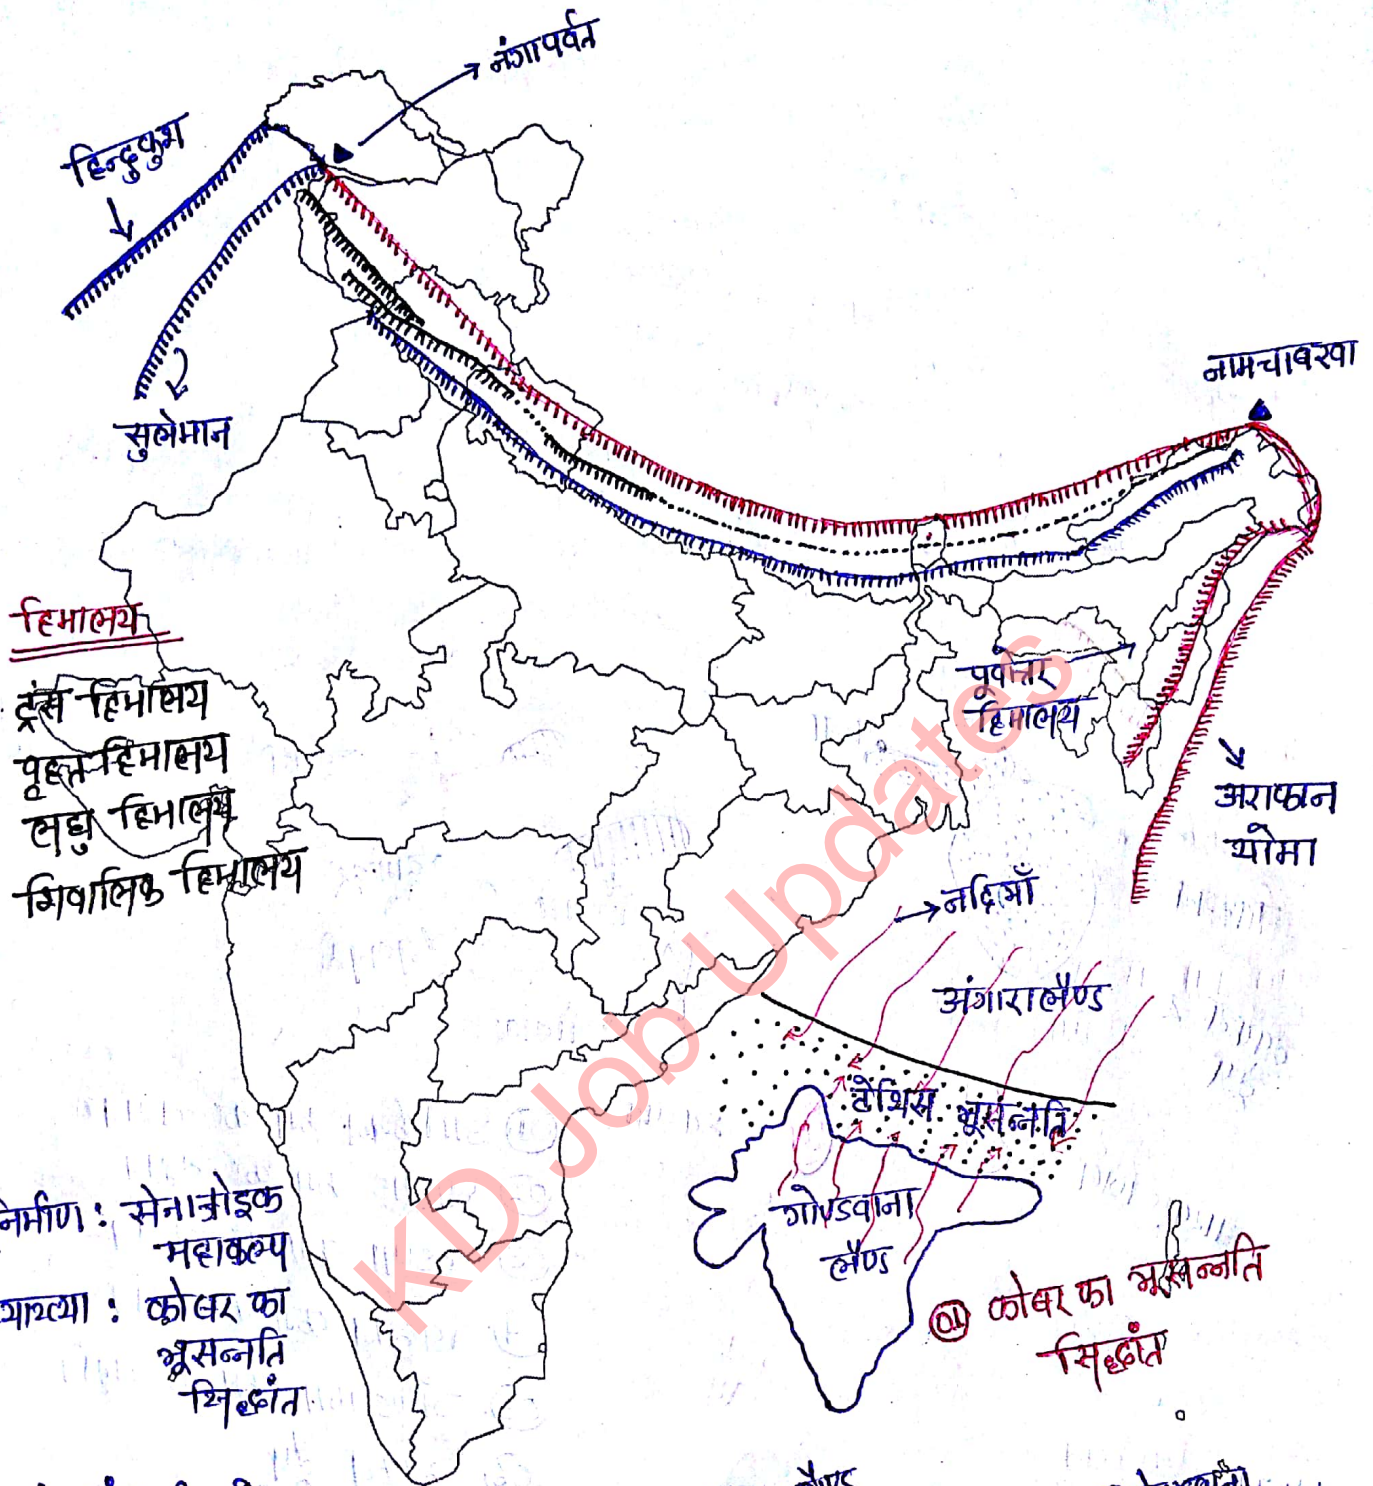 नंगापर्वत
हिन्दुकुश
सुलेमान
नामचाबरवा
हिमालय
ट्रंस हिमालय
वृहत हिमालय
लघु हिमालय
शिवालिक हिमालय
पूर्वोत्तर
हिमालय
अराकान
योमा
नदियाँ
अंगारालैण्ड
टेथिस भूसन्नति
गोण्डवाना
लैण्ड
निर्माण : सेनाजोइक
महाकल्प
व्याख्या : कोबर का
भूसन्नति
सिद्धांत
01 कोबर का भूसन्नति
सिद्धांत
KD Job Updates
लैण्ड